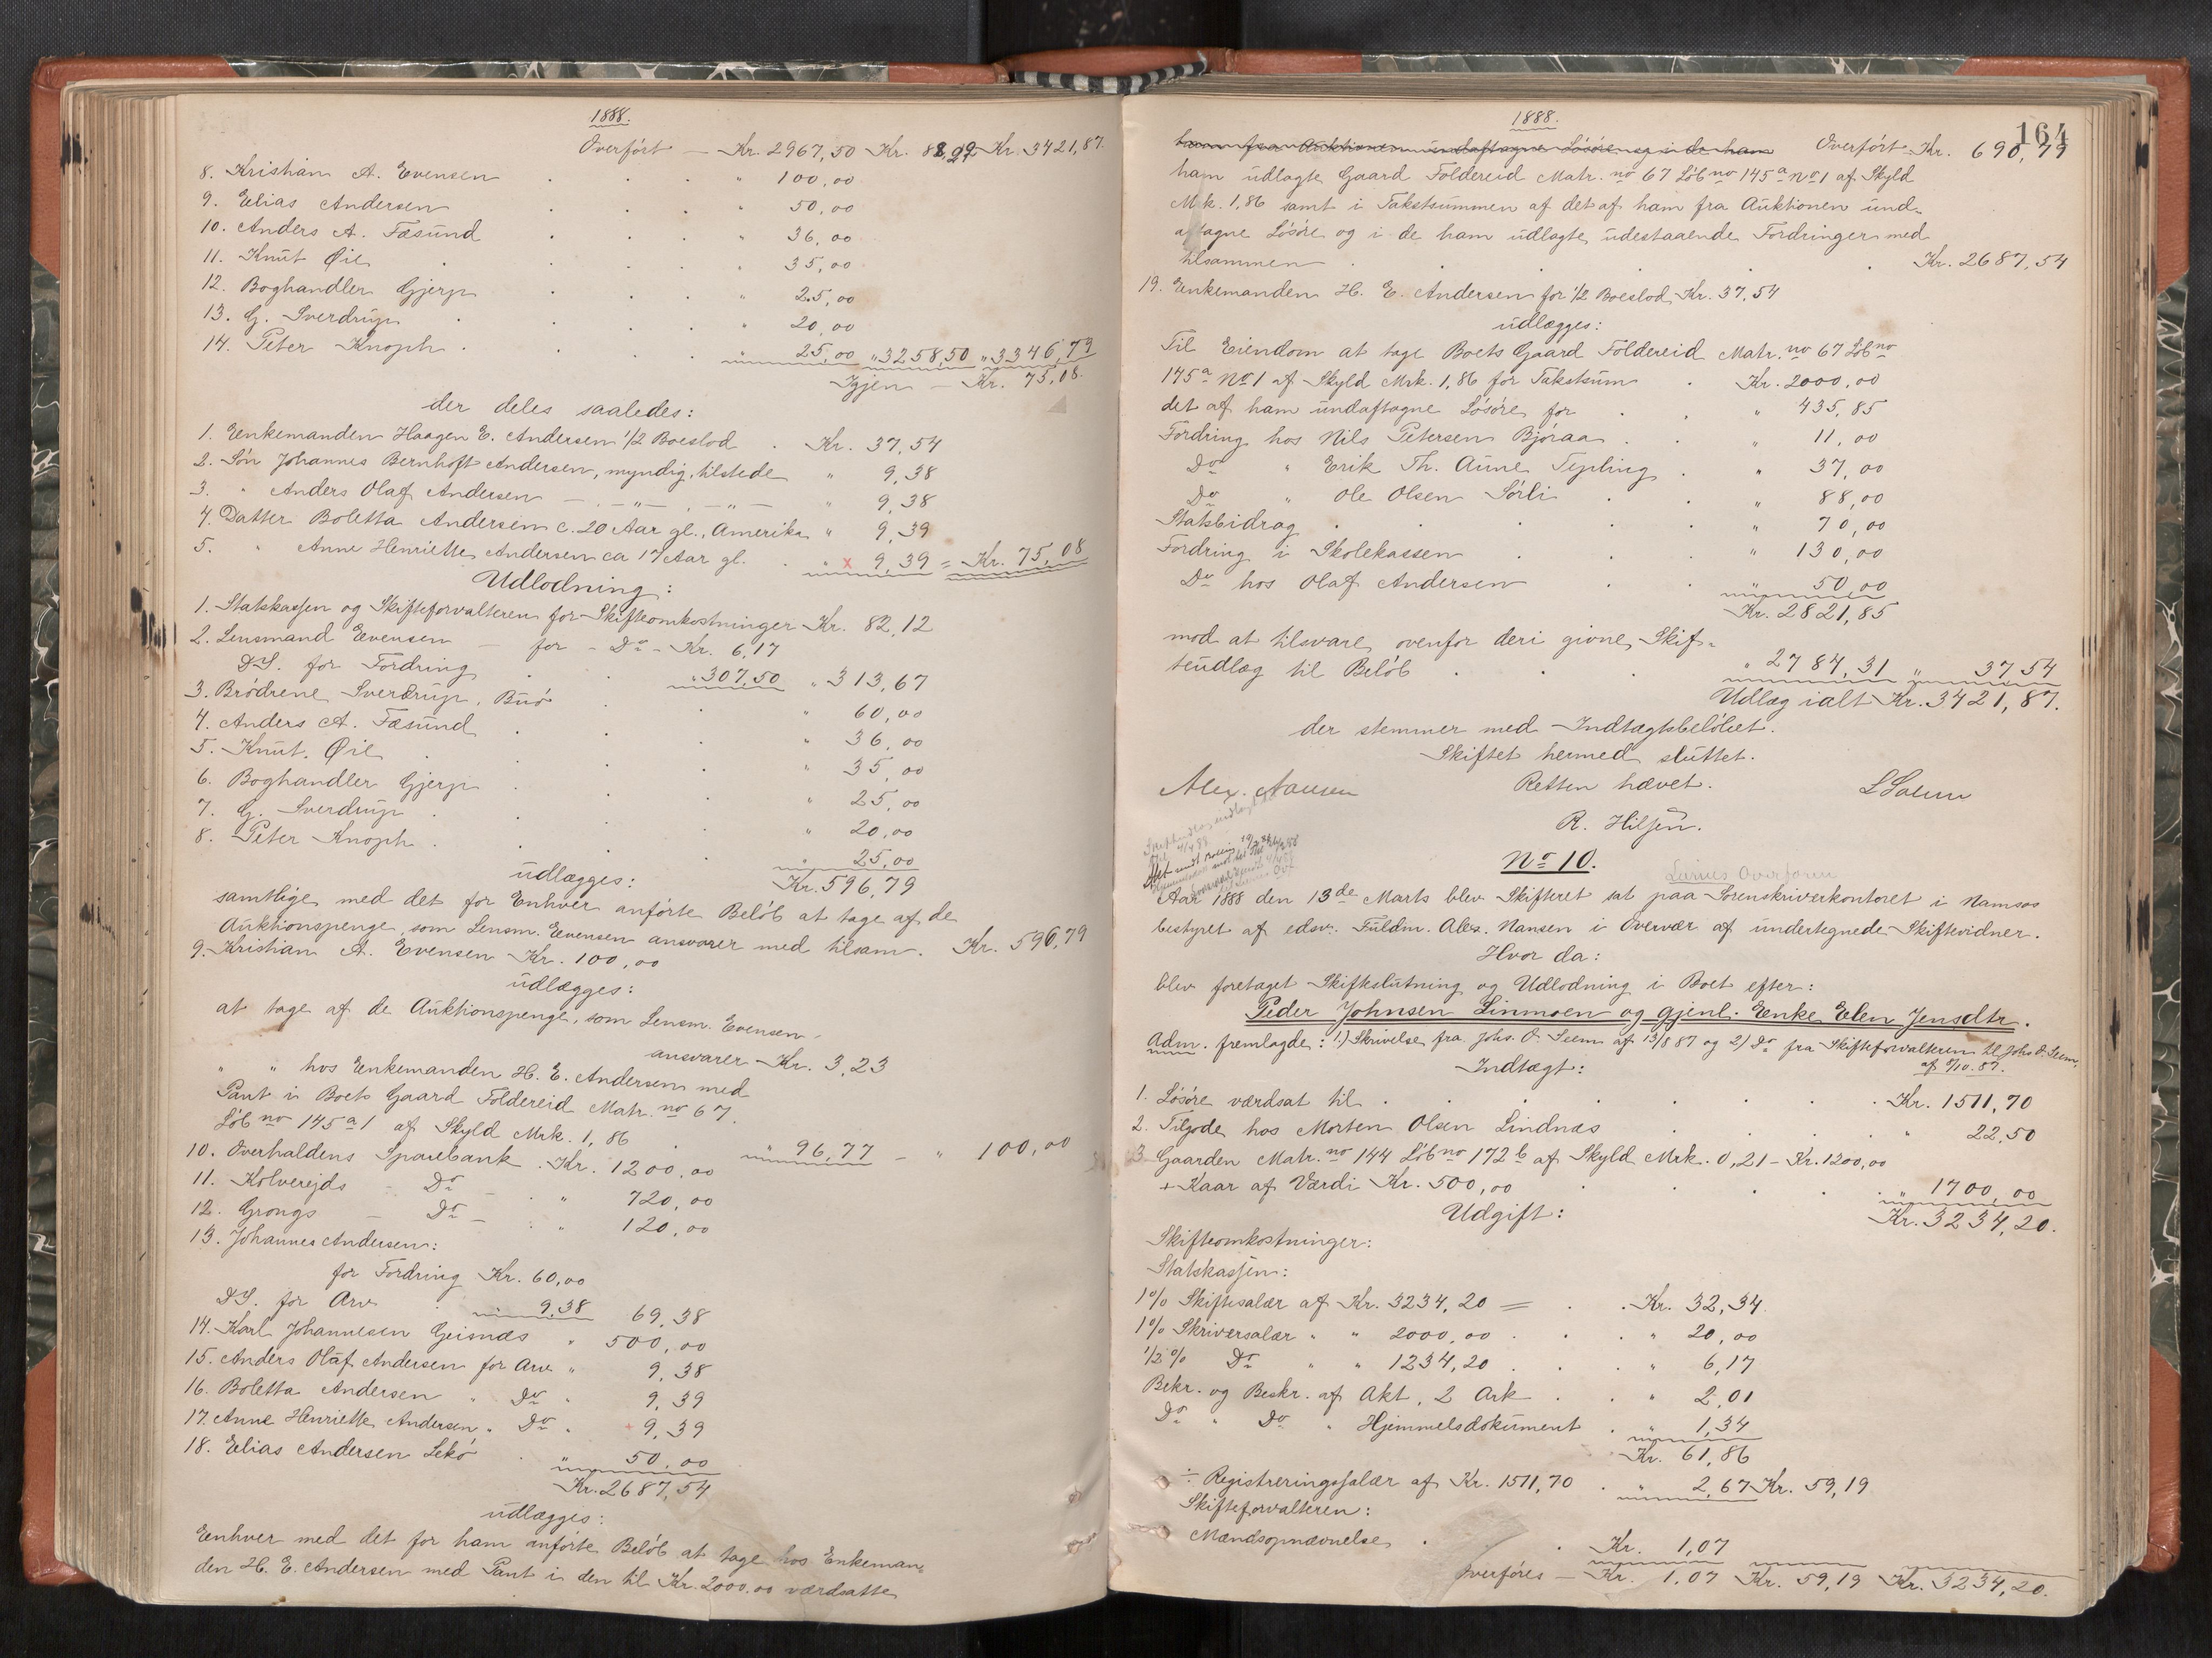 1888.
Overført — Kr. 2967,50 Kr. 88,29 Kr. 3421,87.
8. Kristian A. Evensen . . . " 100,00
9. Elias Andersen . . . " 50,00
10. Anders A. Fæsund . . . " 36,00
11. Knut Øie . . . " 35,00
12. Boghandler Gjerp . . . " 25,00
13. G. Sverdrup . . . " 20,00
14. Peter Knoph . . . " 25,00 " 3258,50 " 3346,79
Igjen — Kr. 75,08.
der deles saaledes:
1. Enkemanden Haagen E. Andersen 1/2 Boeslod . Kr. 37,54
2. Søn Johannes Bernhoft Andersen, myndig, tilstede " 9,38
3. " Anders Olaf Andersen — " — " — " 9,38
4. Datter Boletta Andersen c. 20 Aar gl., Amerika " 9,39
5. " Anne Henriette Andersen ca 17 Aar gl. . " x 9,39 = Kr. 75,08
Udlodning:
1. Statskassen og Skifteforvalteren for Skifteomkostninger Kr. 82,12
2. Lensmand Evensen — for - Do - Kr. 6,17
DS. for Fordring . . " 307,50 " 313,67
3. Brødrene Sverdrup, Buø . . " 60,00
4. Anders A. Fæsund . . . " 36,00
5. Knut Øie . . . " 35,00
6. Boghandler Gjerp . . . " 25,00
7. G. Sverdrup . . . " 20,00
8. Peter Knoph . . . " 25,00
udlægges: Kr. 596,79
samtlige med det for Enhver anførte Beløb at tage af de
Auktionspenge, som Lensm. Evensen ansvarer med tilsam. Kr. 596,79
9. Kristian A. Evensen Kr. 100,00
udlægges:
at tage af de Auktionspenge, som Lensm. Evensen
ansvarer Kr. 3,23
" " hos Enkemanden H. E. Andersen med
Pant i Boets Gaard Foldereid Matr. no 67
Løb no 145 a 1 af Skyld Mrk. 1,86 . " 96,77 — " 100,00
10. Overhaldens Sparebank . Kr. 1200,00
11. Kolvereids — Do — " 720,00
12. Grongs — Do — " 120,00
13. Johannes Andersen:
for Fordring Kr. 60,00
DS. for Arv . " 9,38 69,38
14. Karl Johannesen Geisnæs " 500,00
15. Anders Olaf Andersen for Arv " 9,38
16. Boletta Andersen " Do " 9,39
17. Anne Henriette Andersen " Do " 9,39
18. Elias Andersen Lekø . " 50,00
Kr. 2687,54
udlægges:
Eenhver med det for ham anførte Beløb at tage hos Enkeman-
den H. E. Andersen med Pant i den til Kr. 2000.00 værdsatte
1888.
164
ham fra Auktionen undaftagne Løsøre og i de ham Overført Kr. 690,79
ham udlagte Gaard Foldereid Matr. no 67 Løb no 145 a No 1 af Skyld
Mrk. 1,86 samt i Takstsummen af det af ham fra Auktionen und-
aftagne Løsøre og i de ham udlagte udestaaende Fordringer med
tilsammen . . . . Kr. 2687,54
19. Enkemanden H. E. Andersen for 1/2 Boeslod Kr. 37,54
udlægges:
Til Eiendom at tage Boets Gaard Foldereid Matr. no 67 Løb no
145 a No 1 af Skyld Mrk. 1,86 for Takstsum . Kr. 2000,00
det af ham undaftagne Løsøre for . . " 435,85
Fordring hos Nils Petersen Bjøraa . . " 11,00
Do " Erik Th. Aune Tepling . " 37,00
Do " Ole Olsen Sørli . . " 88,00
Statsbidrag . . . " 70,00
Fordring i Skolekassen . . . " 130,00
Do hos Olaf Andersen . . " 50,00
Kr. 2821,85
mod at tilsvare ovenfor deri givne Skif-
teudlæg til Beløb . . . " 2784,31 " 37,54
Udlæg ialt Kr. 3421,87.
der stemmer med Indtægtsbeløbet.
Skiftet hermed sluttet.
Alex. Nansen Retten hævet. L Salen
R. Hilsen.
No 10.
Aar 1888 den 13de Marts blev Skifteret sat paa Sorenskriverkontoret i Namsos
bestyret af edsv. Fuldm. Alex. Nansen i Overvær af undertegnede Skiftevidner.
Hvor da:
blev foretaget Skifteslutning og Udlodning i Boet efter:
Peder Johnsen Linmoen og gjenl. Enke Elen Jensdtr.
Adm. fremlagde: 1.) Skrivelse fra Johs. O. Seem af 13/8 87 og 2) Do fra Skifteforvalteren til Johs O. Seem,
Indtægt:
1. Løsøre værdsat til . . . . Kr. 1511,70
2. Tilgode hos Morten Olsen Lindnæs . . . " 22,50
3. Gaarden Matr. no 144 Løb no 172 b af Skyld Mrk. 0,21 - Kr. 1200,00
+ Kaar af Værdi Kr. 500,00 . . . " 1700,00
Udgift: Kr. 3234,20.
Skifteomkostninger:
Statskassen:
1% Skiftesalær af Kr. 3234,20 = . . Kr. 32,34
1% Skriversalær " " 2000,00 . . " 20,00
1/2% Do " " 1234,20 . . " 6,17
Bekr. og Beskr. af Akt, 2 Ark . . " 2,01
Do " Do " Hjemmelsdokument . " 1,34
Kr. 61,86
÷ Registreringssalær af Kr. 1511,70 . " 2,67 Kr. 59,19
Skifteforvalteren:
Mændsopnævnelse . . Kr. 1,07
Overføres — Kr. 1,07 Kr. 59,19 Kr. 3234,20.